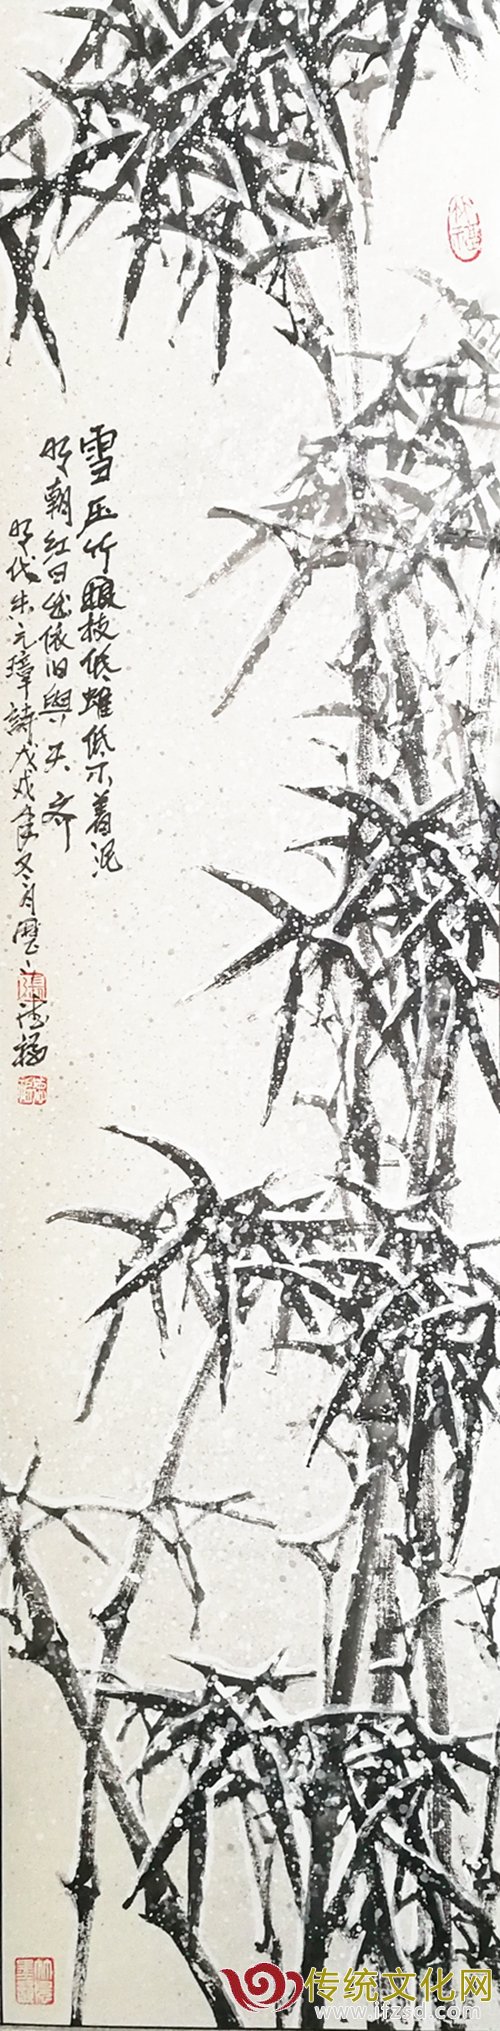 雪压竹枝低雖低不着泥
明朝红日出依旧與天齐
明代朱元璋詩戊戌年冬月
德福
传统文化网
www.lfzsd.com